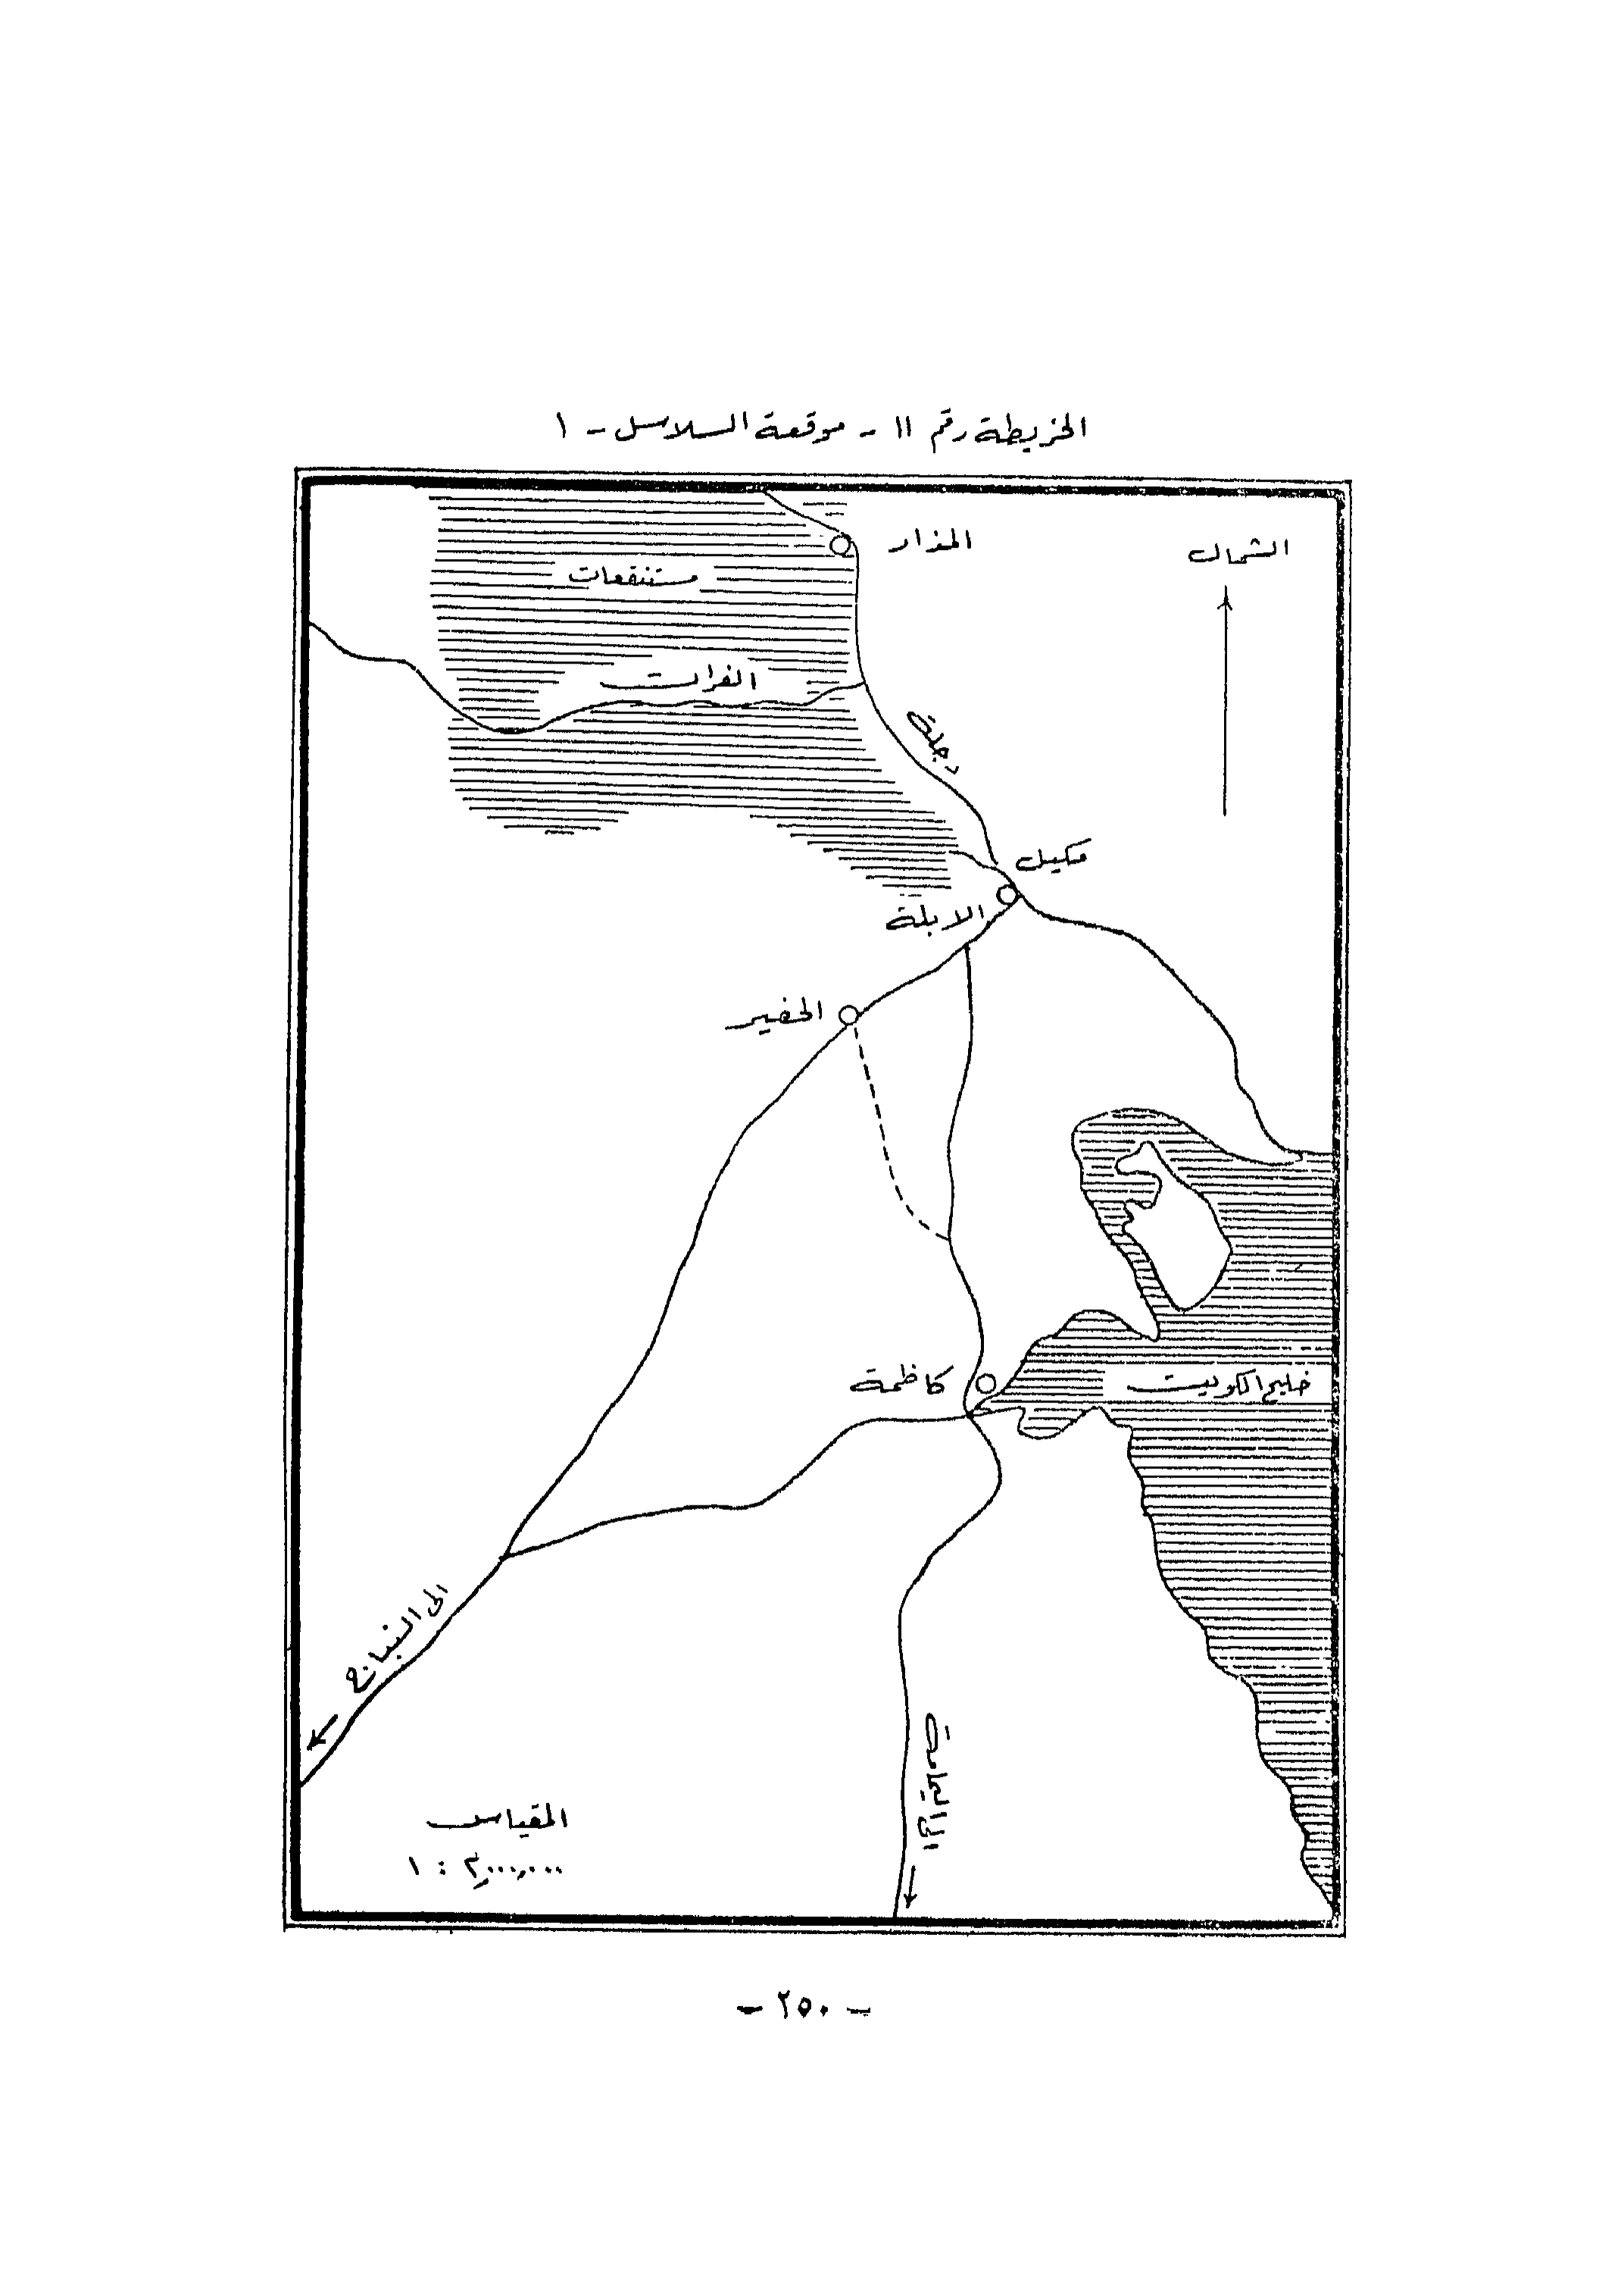 الخريطة رقم ١١ - موقعة السلاسل - ١
المذار
الشمال
مستنقعات
الفرات
دجلة
مكيل
الابلة
الحفير
كاظمة
خليج الكويت
الى النباج
الى اليمامة
المقياس
١ : ٢,٠٠٠,٠٠٠
- ٢٥٠ -